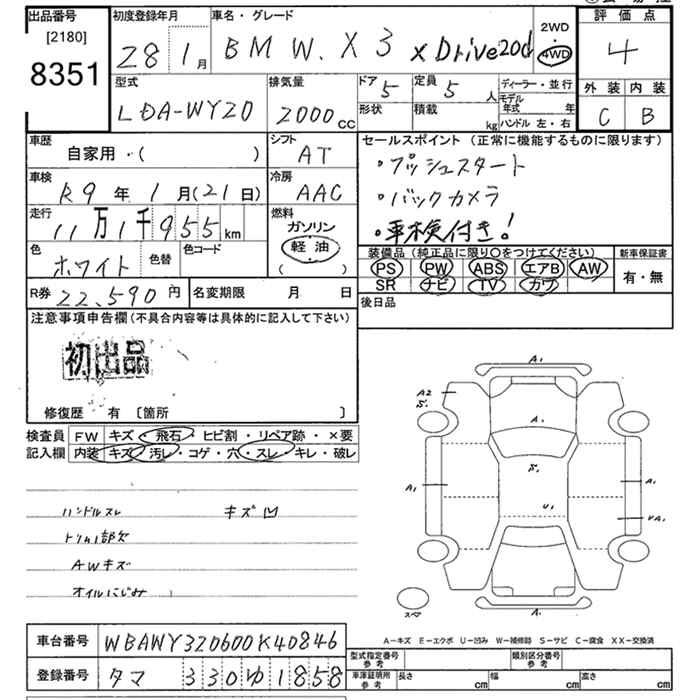 出品番号
[2180]
8351
初度登録年月
28 1月
車名・グレード
BMW. X3 xDrive20d
2WD
4WD
評価点
4
外装 内装
C B
型式
LDA-WY20
排気量
2000cc
ドア
5
定員
5人
形状
積載
kg
ディーラー・並行
モデル年式 年
ハンドル 左・右
車歴
自家用・( )
シフト
AT
車検
R9年1月(21日)
冷房
AAC
走行
11万1千955km
燃料
ガソリン
軽油
( )
色
ホワイト
色替
色コード
R券 22,590円
名変期限 月 日
セールスポイント (正常に機能するものに限ります)
・プッシュスタート
・バックカメラ
・車検付き!
装備品(純正品に限り○をつけてください)
PS PW ABS エアB AW
SR ナビ TV カワ
新車保証書
有・無
後日品
注意事項申告欄(不具合内容等は具体的に記入して下さい)
初出品
修復歴 有 〔箇所 〕
検査員記入欄
FW キズ・飛石・ヒビ割・リペア跡・×要
内装 キズ・汚レ・コゲ・穴・スレ・キレ・破レ
ハンドルスレ キズ凹
トリム1部欠
AWキズ
オイルにじみ
A1
A2
S1
A1
S1
A1
A1
U1
UA1
A1
スペア
A-キズ E-エクボ U-凹み W-補修跡 S-サビ C-腐食 XX-交換済
車台番号 WBAWY320600K40846
登録番号 タマ 330 ゆ 1858
型式指定番号 参考
類別区分番号 参考
車庫証明所 参考
長さ cm
幅 cm
高さ cm